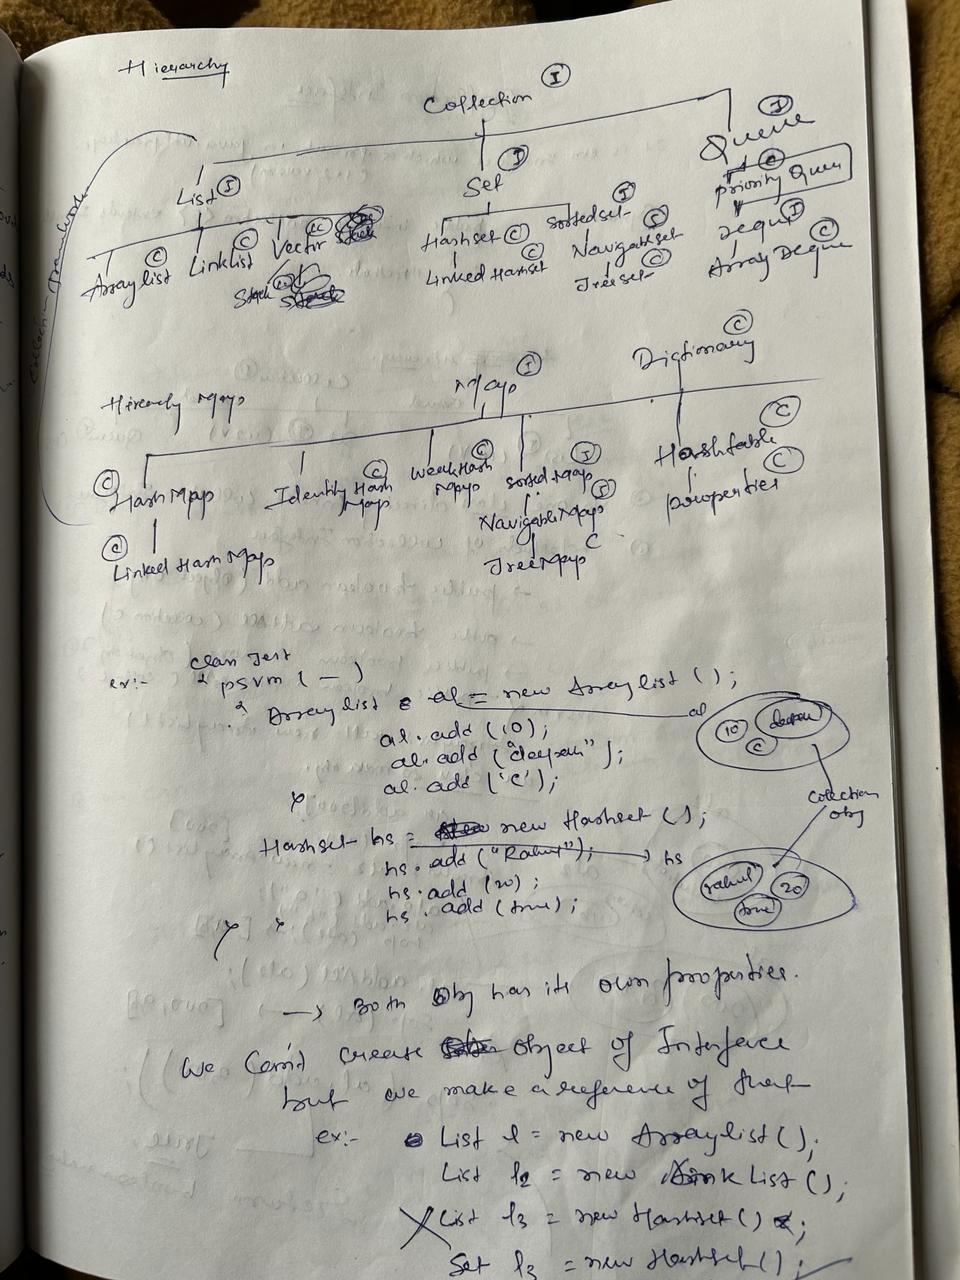 Hierarchy
Collection (I)
List (I)
Set (I)
Queue (I)
Arraylist (C)
LinkList (C)
Vector (C)
Stack (C)
Hashset (C)
Linked Hashset (C)
Sortedset (I)
Navigabset (C)
Treeset (C)
Priority Queu (C)
Dequ (I)
Array Deque (C)
Collection framework
Hirearchy Maps
Map (I)
Dictionary (C)
(C) HashMap
(C) Linked Hash Map
Identity Hash (C)
Map
WeakHash (C)
Map
Sorted Map (I)
Navigable Map (I)
TreeMap C
Hashtable (C)
properties (C)
ex:- class Test
{ psvm ( — )
{ Arraylist al = new Arraylist ();
al. add (10);
al. add ("deepan");
al. add ('c');
}
al
10
c
Hashset hs = new Hashset ();
hs. add ("Rahul");
hs. add (20);
hs. add (true);
} }
hs
rahul
20
true
Colection
obj
→ Both Obj has its own properties.
We Can't create object of Interface
but we make a reference of that
ex:- List l = new Arraylist();
List l2 = new Link List ();
X List l3 = new Hashset();
Set l3 = new Hashset(); ✓